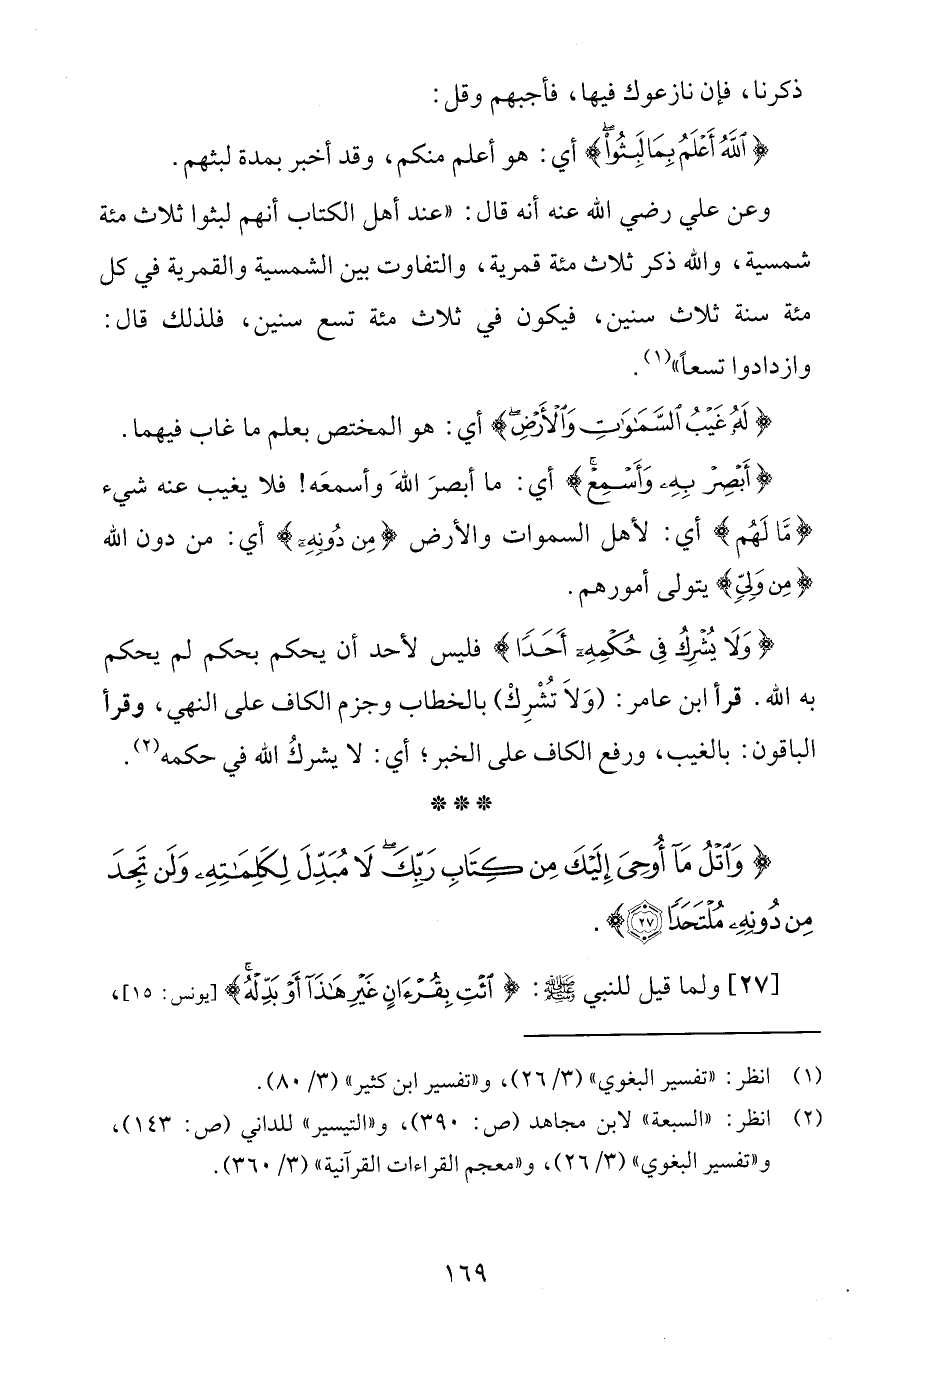 ذكرنا، فإن نازعوك فيها، فأجبهم وقل:
﴿ٱللَّهُ أَعْلَمُ بِمَا لَبِثُوا۟ۖ﴾ أي: هو أعلم منكم، وقد أخبر بمدة لبثهم.
وعن علي رضي الله عنه أنه قال: «عند أهل الكتاب أنهم لبثوا ثلاث مئة
شمسية، والله ذكر ثلاث مئة قمرية، والتفاوت بين الشمسية والقمرية في كل
مئة سنة ثلاث سنين، فيكون في ثلاث مئة تسع سنين، فلذلك قال:
وازدادوا تسعاً»(١).
﴿لَهُۥ غَيْبُ ٱلسَّمَـٰوَٰتِ وَٱلْأَرْضِۖ﴾ أي: هو المختص بعلم ما غاب فيهما.
﴿أَبْصِرْ بِهِۦ وَأَسْمِعْۚ﴾ أي: ما أبصرَ اللهَ وأسمعَه! فلا يغيب عنه شيء
﴿مَّا لَهُم﴾ أي: لأهل السموات والأرض ﴿مِن دُونِهِۦ﴾ أي: من دون الله
﴿مِن وَلِىٍّ﴾ يتولى أمورهم.
﴿وَلَا يُشْرِكُ فِى حُكْمِهِۦٓ أَحَدًا﴾ فليس لأحد أن يحكم بحكم لم يحكم
به الله. قرأ ابن عامر: (وَلاَ تُشْرِكْ) بالخطاب وجزم الكاف على النهي، وقرأ
الباقون: بالغيب، ورفع الكاف على الخبر؛ أي: لا يشركُ الله في حكمه(٢).
* * *
﴿وَٱتْلُ مَآ أُوحِىَ إِلَيْكَ مِن كِتَابِ رَبِّكَۖ لَا مُبَدِّلَ لِكَلِمَـٰتِهِۦ وَلَن تَجِدَ
مِن دُونِهِۦ مُلْتَحَدًا ٢٧﴾.
[٢٧] ولما قيل للنبي ﷺ: ﴿ٱئْتِ بِقُرْءَانٍ غَيْرِ هَـٰذَآ أَوْ بَدِّلْهُۚ﴾ [يونس: ١٥]،
(١) انظر: «تفسير البغوي» (٣/ ٢٦)، و«تفسير ابن كثير» (٣/ ٨٠).
(٢) انظر: «السبعة» لابن مجاهد (ص: ٣٩٠)، و«التيسير» للداني (ص: ١٤٣)،
و«تفسير البغوي» (٣/ ٢٦)، و«معجم القراءات القرآنية» (٣/ ٣٦٠).
١٦٩